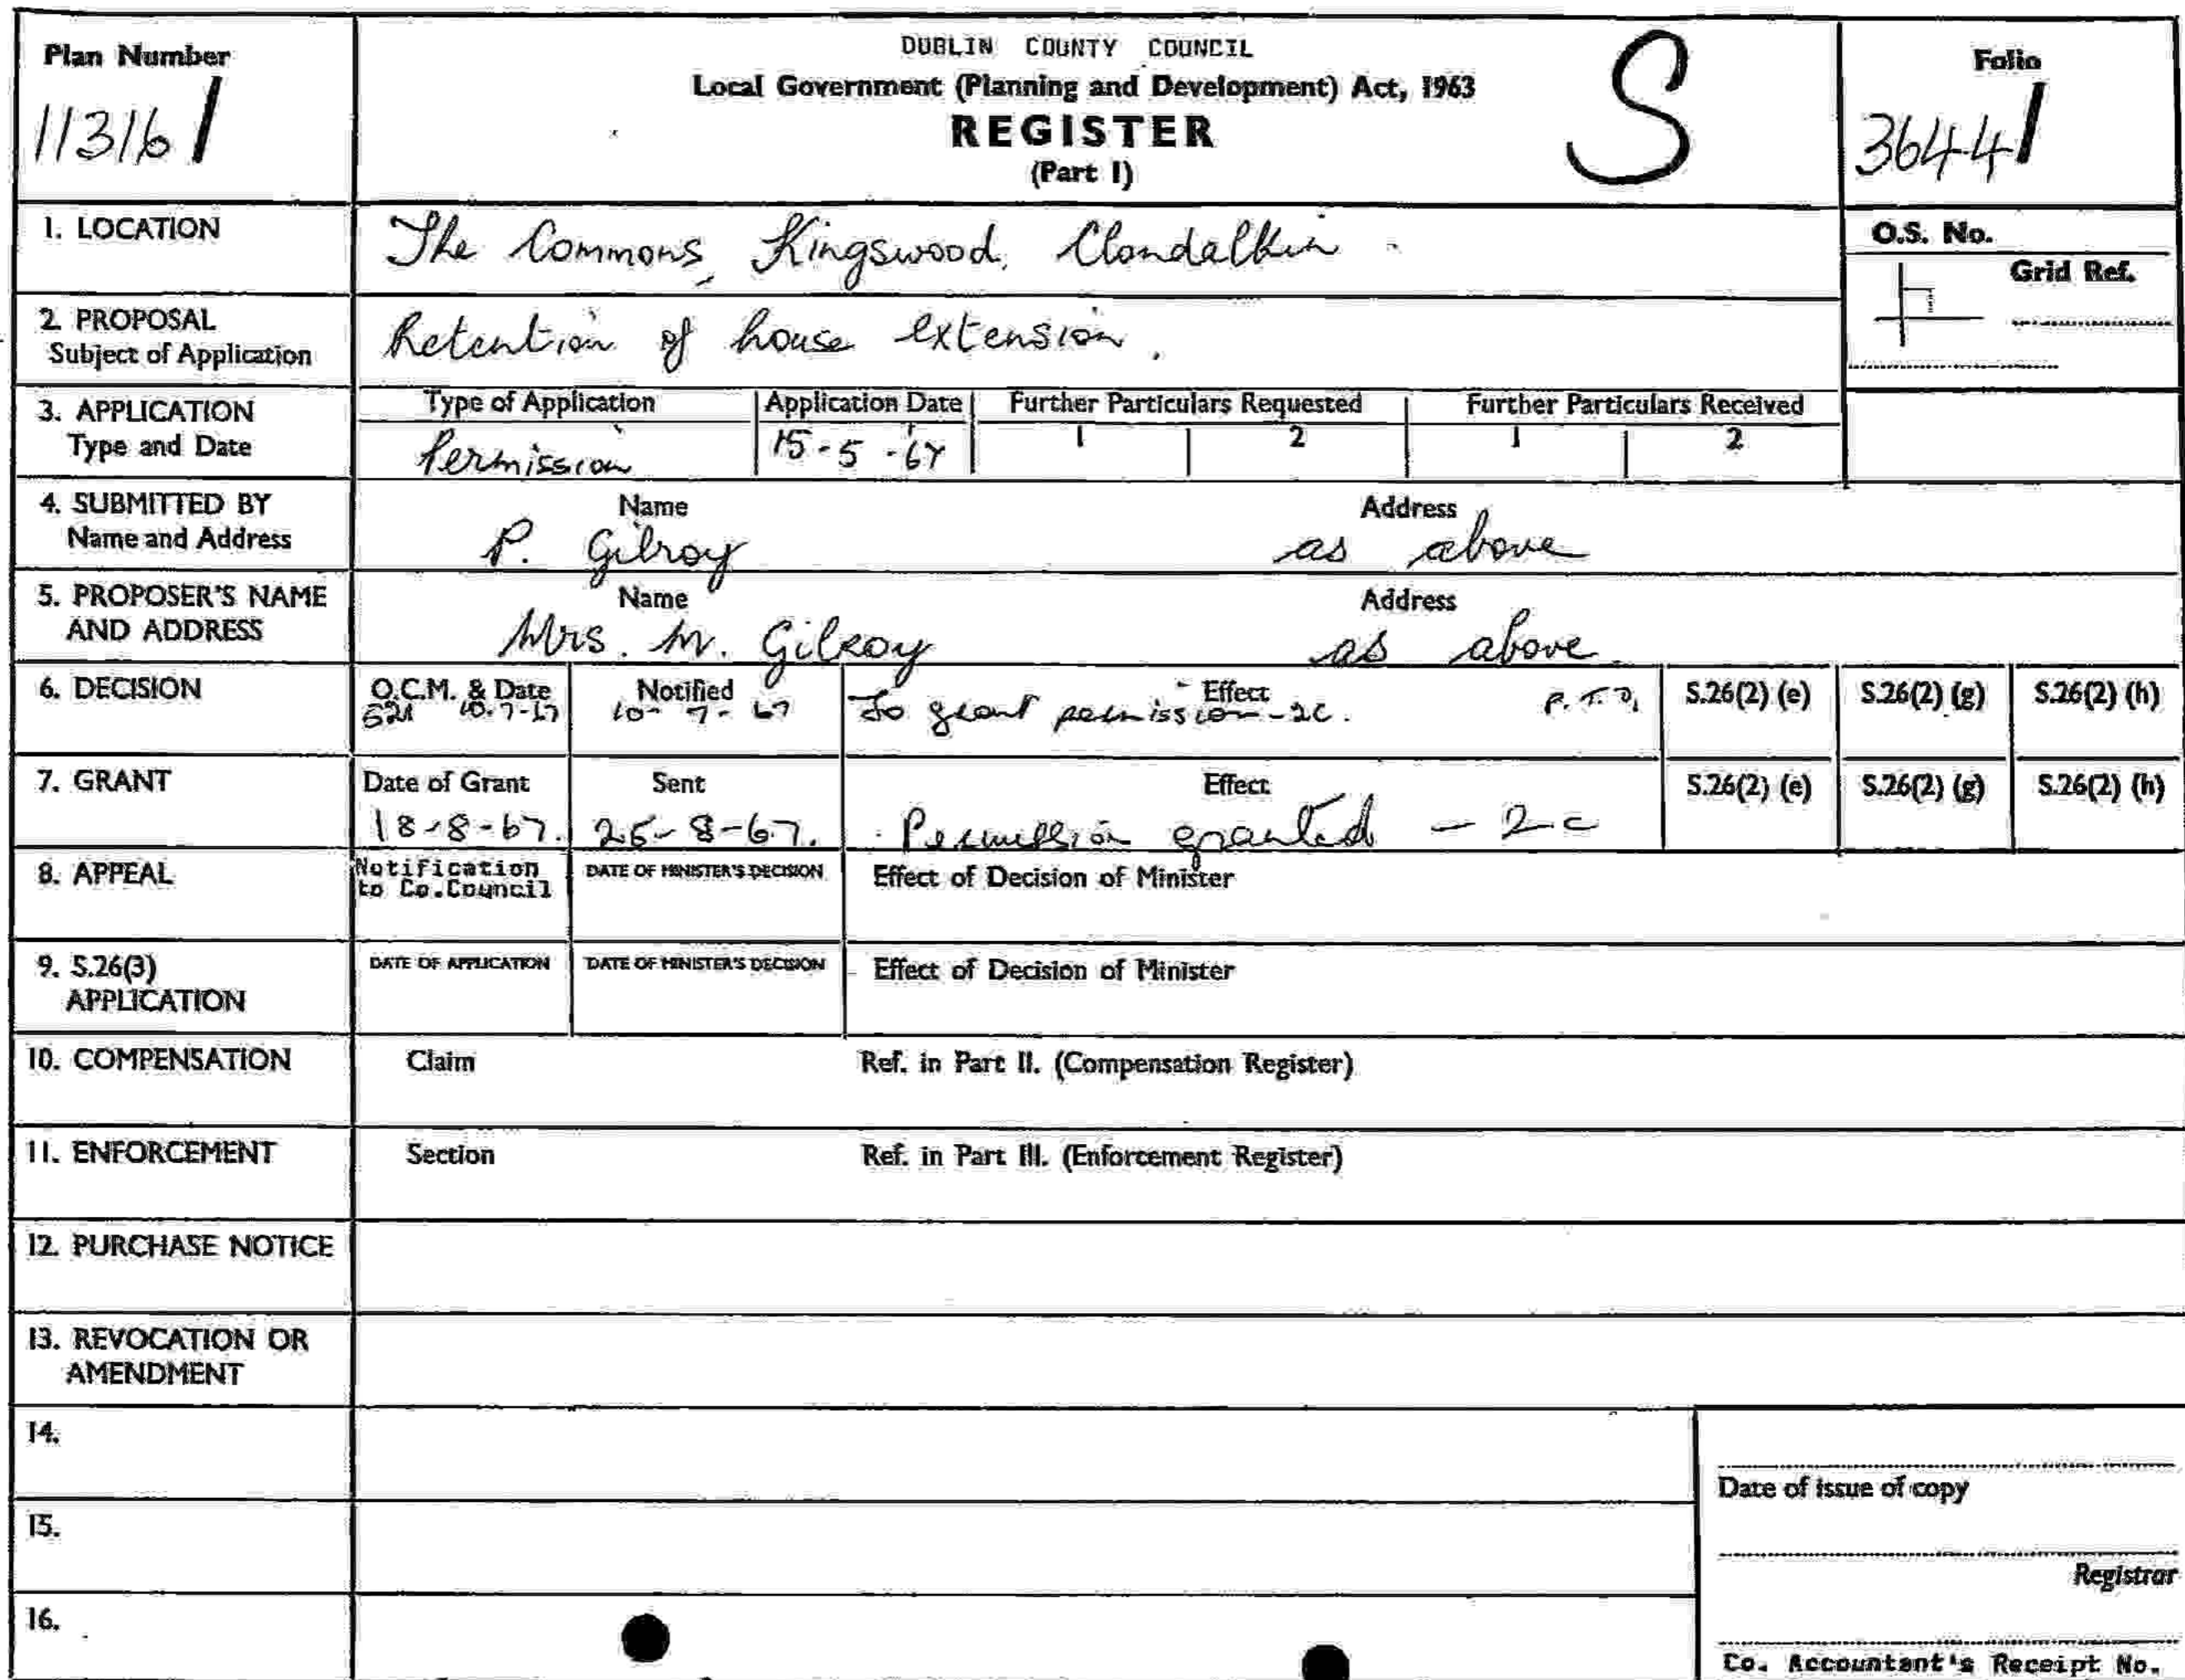 Plan Number
11316/
DUBLIN COUNTY COUNCIL
Local Government (Planning and Development) Act, 1963
REGISTER
(Part I)
S
Folio
3644/
1. LOCATION
The Commons, Kingswood, Clondalkin.
O.S. No.
Grid Ref.
2. PROPOSAL
Subject of Application
Retention of house extension.
3. APPLICATION
Type and Date
Type of Application
Permission
Application Date
15-5-67
Further Particulars Requested
1 2
Further Particulars Received
1 2
4. SUBMITTED BY
Name and Address
Name
P. Gilroy
Address
as above
5. PROPOSER'S NAME
AND ADDRESS
Name
Mrs. M. Gilroy
Address
as above
6. DECISION
O.C.M. & Date
10-7-67
Notified
10-7-67
Effect
To grant permission-2c. P.T.O.
S.26(2) (e)
S.26(2) (g)
S.26(2) (h)
7. GRANT
Date of Grant
18-8-67.
Sent
25-8-67.
Effect
Permission granted - 2c
S.26(2) (e)
S.26(2) (g)
S.26(2) (h)
8. APPEAL
Notification
to Co.Council
DATE OF MINISTER'S DECISION
Effect of Decision of Minister
9. S.26(3)
APPLICATION
DATE OF APPLICATION
DATE OF MINISTER'S DECISION
Effect of Decision of Minister
10. COMPENSATION
Claim
Ref. in Part II. (Compensation Register)
11. ENFORCEMENT
Section
Ref. in Part III. (Enforcement Register)
12. PURCHASE NOTICE
13. REVOCATION OR
AMENDMENT
14.
15.
16.
Date of issue of copy
Registrar
Co. Accountant's Receipt No.